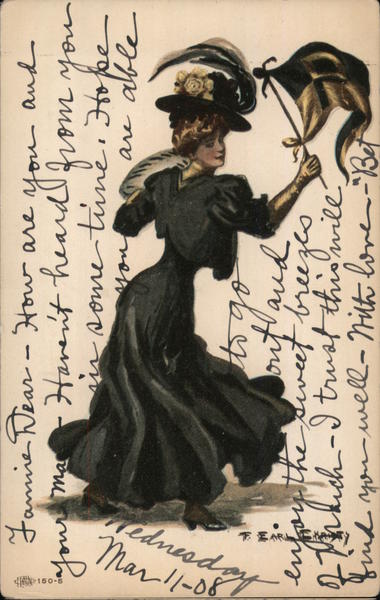 Fannie Dear - How are you and
your ma - Haven't heard from you
in some time. Hope
you are able
to go
out and
enjoy the sweet breezes
- I trust this will
find you well - With love - "Be
Wednesday
Mar 11-08
F. EARL CHRISTY
150-5